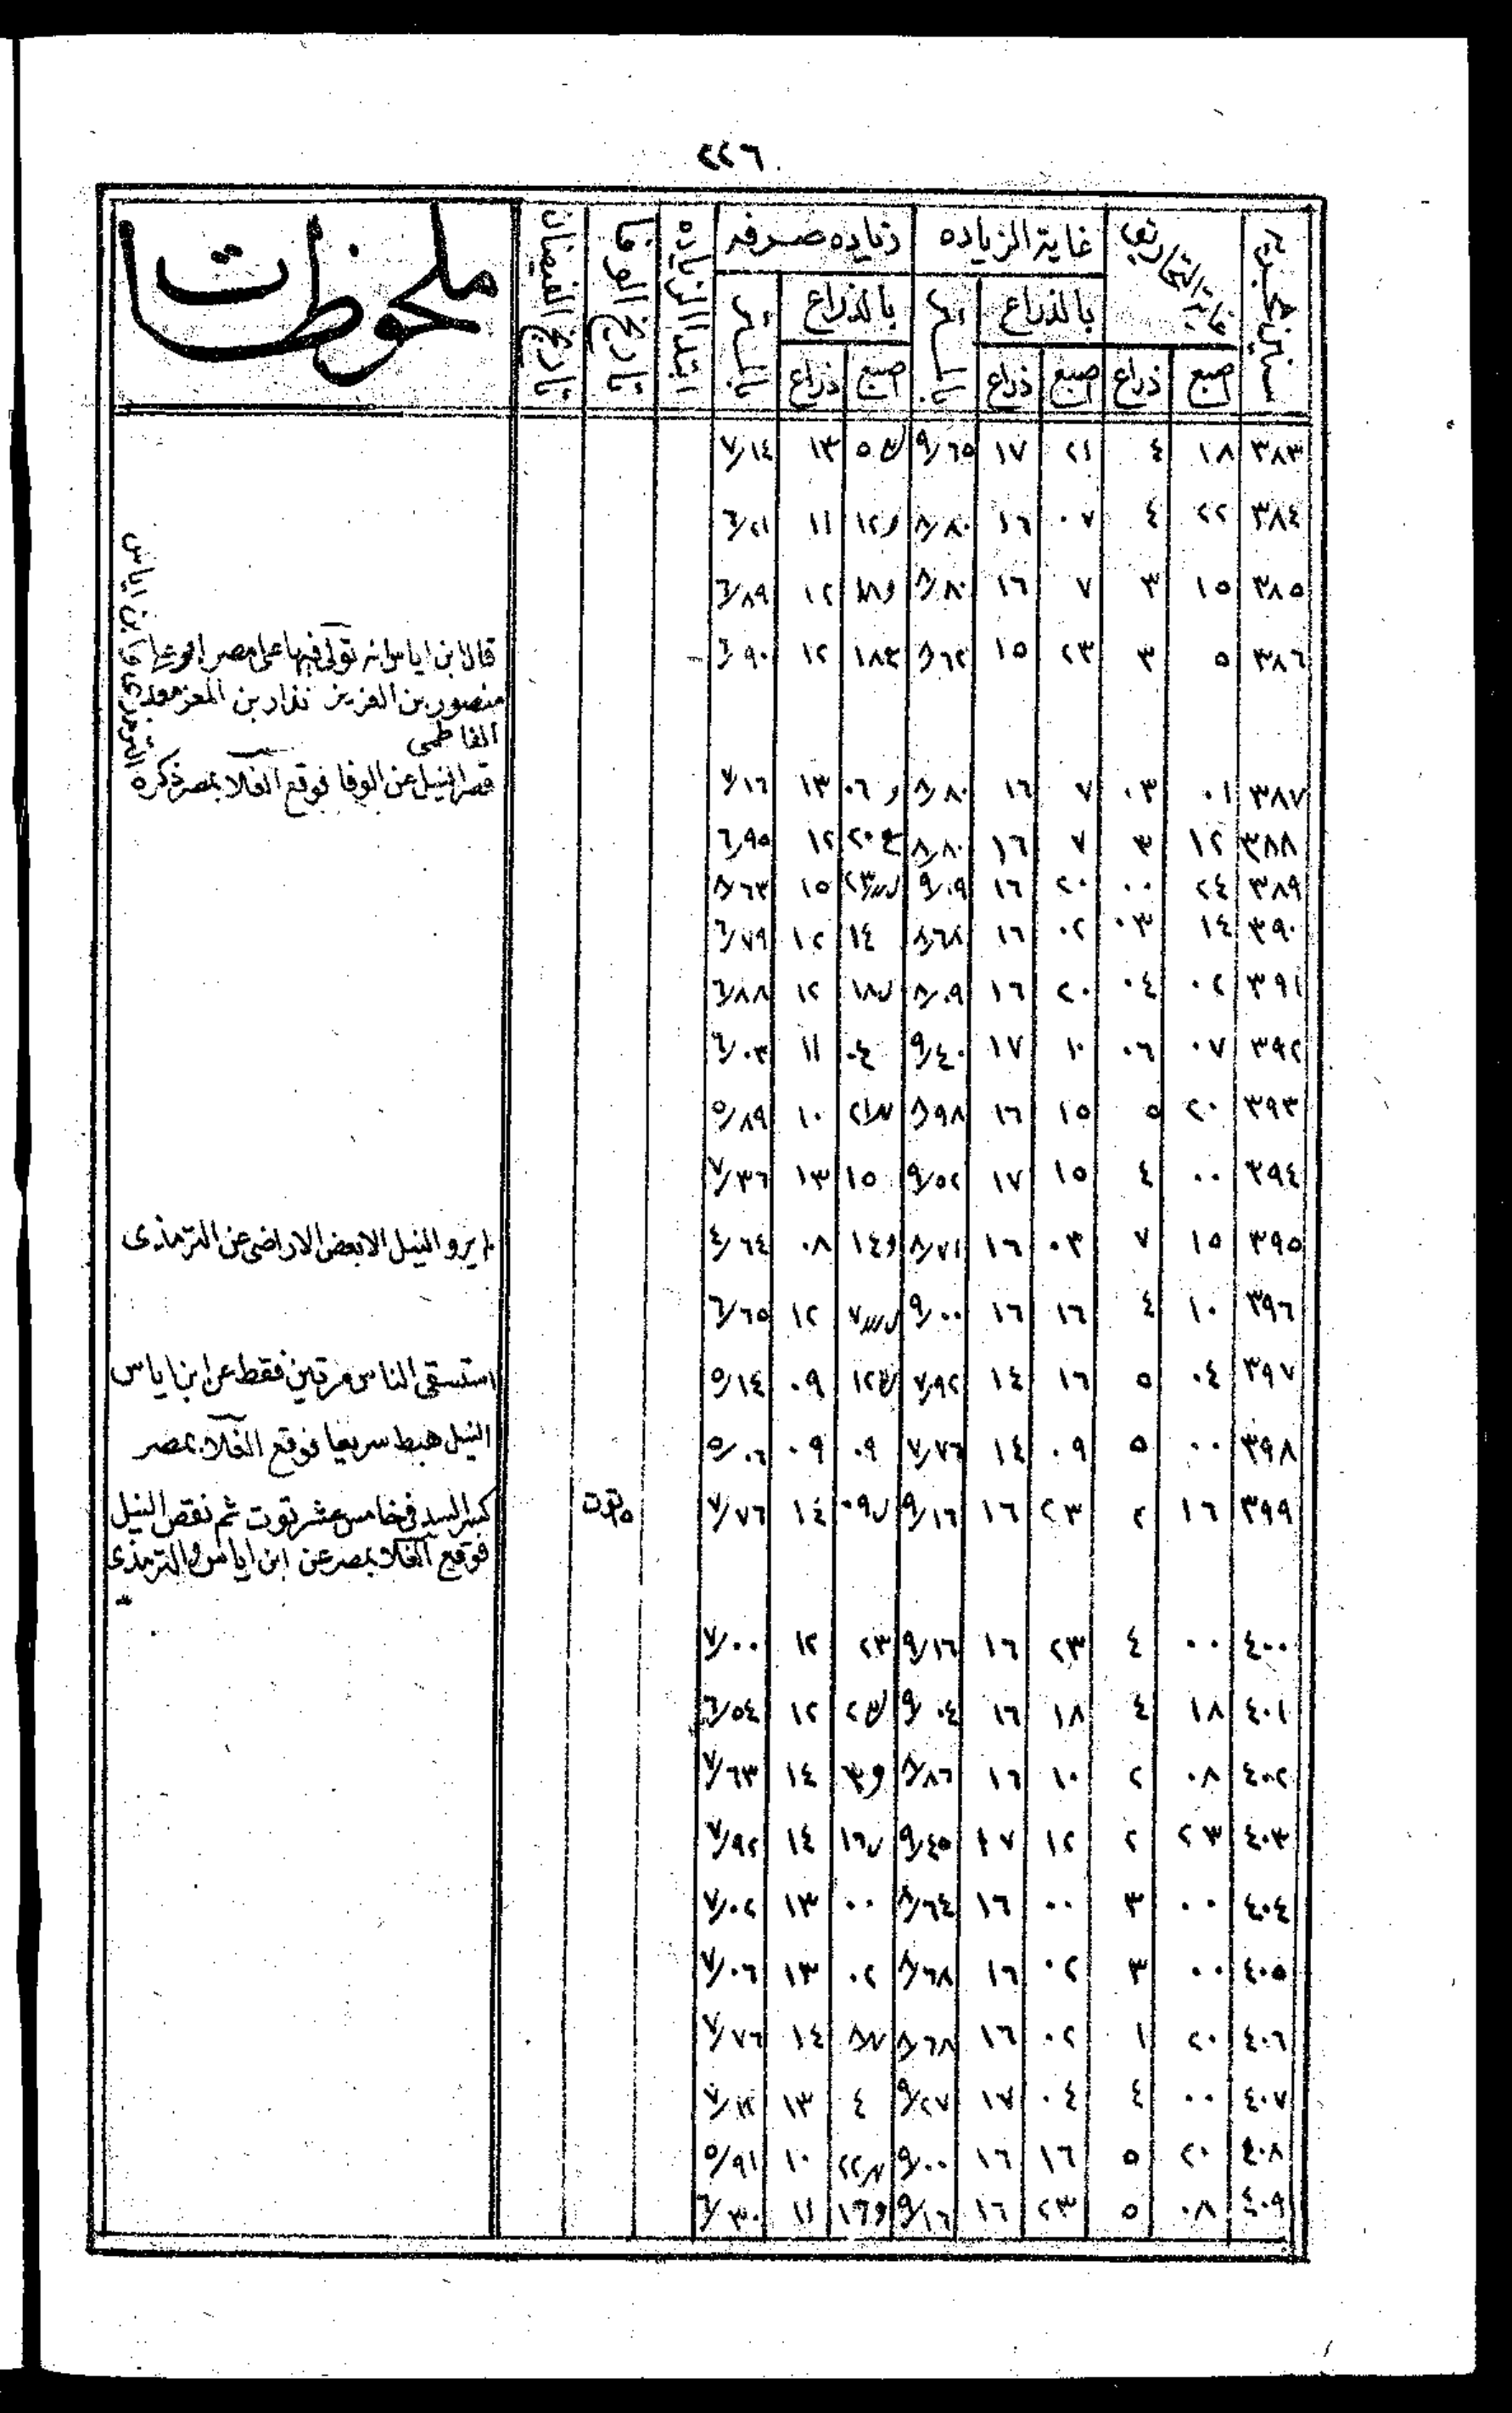 ٢٢٦
سنين هجريه | غاية التحاريق | غاية الزياده | زياده صرفه | ابتدا الزياده | تاريخ الوفا | تاريخ الفيضان | ملحوظات
بالذراع | بالمتر | بالذراع | بالمتر
اصبع | ذراع | اصبع | ذراع | اصبع | ذراع
٣٨٣ | ١٨ | ٤ | ٢١ | ١٧ | ٩٫٦٥ | ٥ | ١٣ | ٧٫١٤
٣٨٤ | ٢٢ | ٤ | ٠٧ | ١٦ | ٨٫٨٠ | ١٢ | ١١ | ٦٫٢١
٣٨٥ | ١٥ | ٣ | ٧ | ١٦ | ٨٫٨٠ | ١٨ | ١٢ | ٦٫٨٩
٣٨٦ | ٥ | ٣ | ٢٣ | ١٥ | ٨٫٦٢ | ١٨ | ١٢ | ٦٫٩٠ | قال ابن اياس انه تولى فيها على مصر ابو على
منصور بن العزيز نزار بن المعز معد
الفاطمى
٣٨٧ | ٠١ | ٠٣ | ٧ | ١٦ | ٨٫٨٠ | ٠٦ | ١٣ | ٧٫١٦ | قصر النيل عن الوفا فوقع الغلا بمصر ذكره
الترمذى وابن اياس
٣٨٨ | ١٢ | ٣ | ٧ | ١٦ | ٨٫٨٠ | ٢٠ | ١٢ | ٦٫٩٥
٣٨٩ | ٢٤ | ٠٠ | ٢٠ | ١٦ | ٩٫٠٩ | ٢٣ | ١٥ | ٨٫٦٣
٣٩٠ | ١٤ | ٠٣ | ٠٢ | ١٦ | ٨٫٦٨ | ١٤ | ١٢ | ٦٫٧٩
٣٩١ | ٠٢ | ٠٤ | ٢٠ | ١٦ | ٨٫٠٩ | ١٨ | ١٢ | ٦٫٨٨
٣٩٢ | ٠٧ | ٠٦ | ١٠ | ١٧ | ٩٫٤٠ | ٠٤ | ١١ | ٦٫٠٣
٣٩٣ | ٢٠ | ٥ | ١٥ | ١٦ | ٨٫٩٨ | ٢١ | ١٠ | ٥٫٨٩
٣٩٤ | ٠٠ | ٤ | ١٥ | ١٧ | ٩٫٥٢ | ١٥ | ١٣ | ٧٫٣٦
٣٩٥ | ١٥ | ٧ | ٠٣ | ١٦ | ٨٫٧١ | ١٤ | ٠٨ | ٤٫٦٤ | لم يرو النيل الا بعض الاراضى عن الترمذى
٣٩٦ | ١٠ | ٤ | ١٦ | ١٦ | ٩٫٠٠ | ٧ | ١٢ | ٦٫٦٥
٣٩٧ | ٠٤ | ٥ | ١٦ | ١٤ | ٧٫٩٢ | ١٢ | ٠٩ | ٥٫١٤ | استسقى الناس مرتين فقط عن ابن اياس
٣٩٨ | ٠٠ | ٥ | ٠٩ | ١٤ | ٧٫٧٦ | ٠٩ | ٠٩ | ٥٫٠٦ | النيل هبط سريعا فوقع الغلا بمصر
٣٩٩ | ١٦ | ٢ | ٢٣ | ١٦ | ٩٫١٦ | ٠٩ | ١٤ | ٧٫٧٦ | ١٥ توت | كسر السد فى خامس عشر توت ثم نقص النيل
فوقع الغلا بمصر عن ابن اياس والترمذى
٤٠٠ | ٠٠ | ٤ | ٢٣ | ١٦ | ٩٫١٦ | ٢٣ | ١٢ | ٧٫٠٠
٤٠١ | ١٨ | ٤ | ١٨ | ١٦ | ٩٫٠٤ | ٢ | ١٢ | ٦٫٥٤
٤٠٢ | ٠٨ | ٢ | ١٠ | ١٦ | ٨٫٨٦ | ٣ | ١٤ | ٧٫٦٣
٤٠٣ | ٢٣ | ٢ | ١٢ | ١٧ | ٩٫٤٥ | ١٦ | ١٤ | ٧٫٩٢
٤٠٤ | ٠٠ | ٣ | ٠٠ | ١٦ | ٨٫٦٤ | ٠٠ | ١٣ | ٧٫٠٢
٤٠٥ | ٠٠ | ٣ | ٠٢ | ١٦ | ٨٫٦٨ | ٠٢ | ١٣ | ٧٫٠٦
٤٠٦ | ٢٠ | ١ | ٠٢ | ١٦ | ٨٫٦٨ | ٨ | ١٤ | ٧٫٧٦
٤٠٧ | ٠٠ | ٤ | ٠٤ | ١٧ | ٩٫٢٧ | ٤ | ١٣ | ٧٫١٢
٤٠٨ | ٢٠ | ٥ | ١٦ | ١٦ | ٩٫٠٠ | ٢٢ | ١٠ | ٥٫٩١
٤٠٩ | ٠٨ | ٥ | ٢٣ | ١٦ | ٩٫١٦ | ١٦ | ١١ | ٦٫٣٠